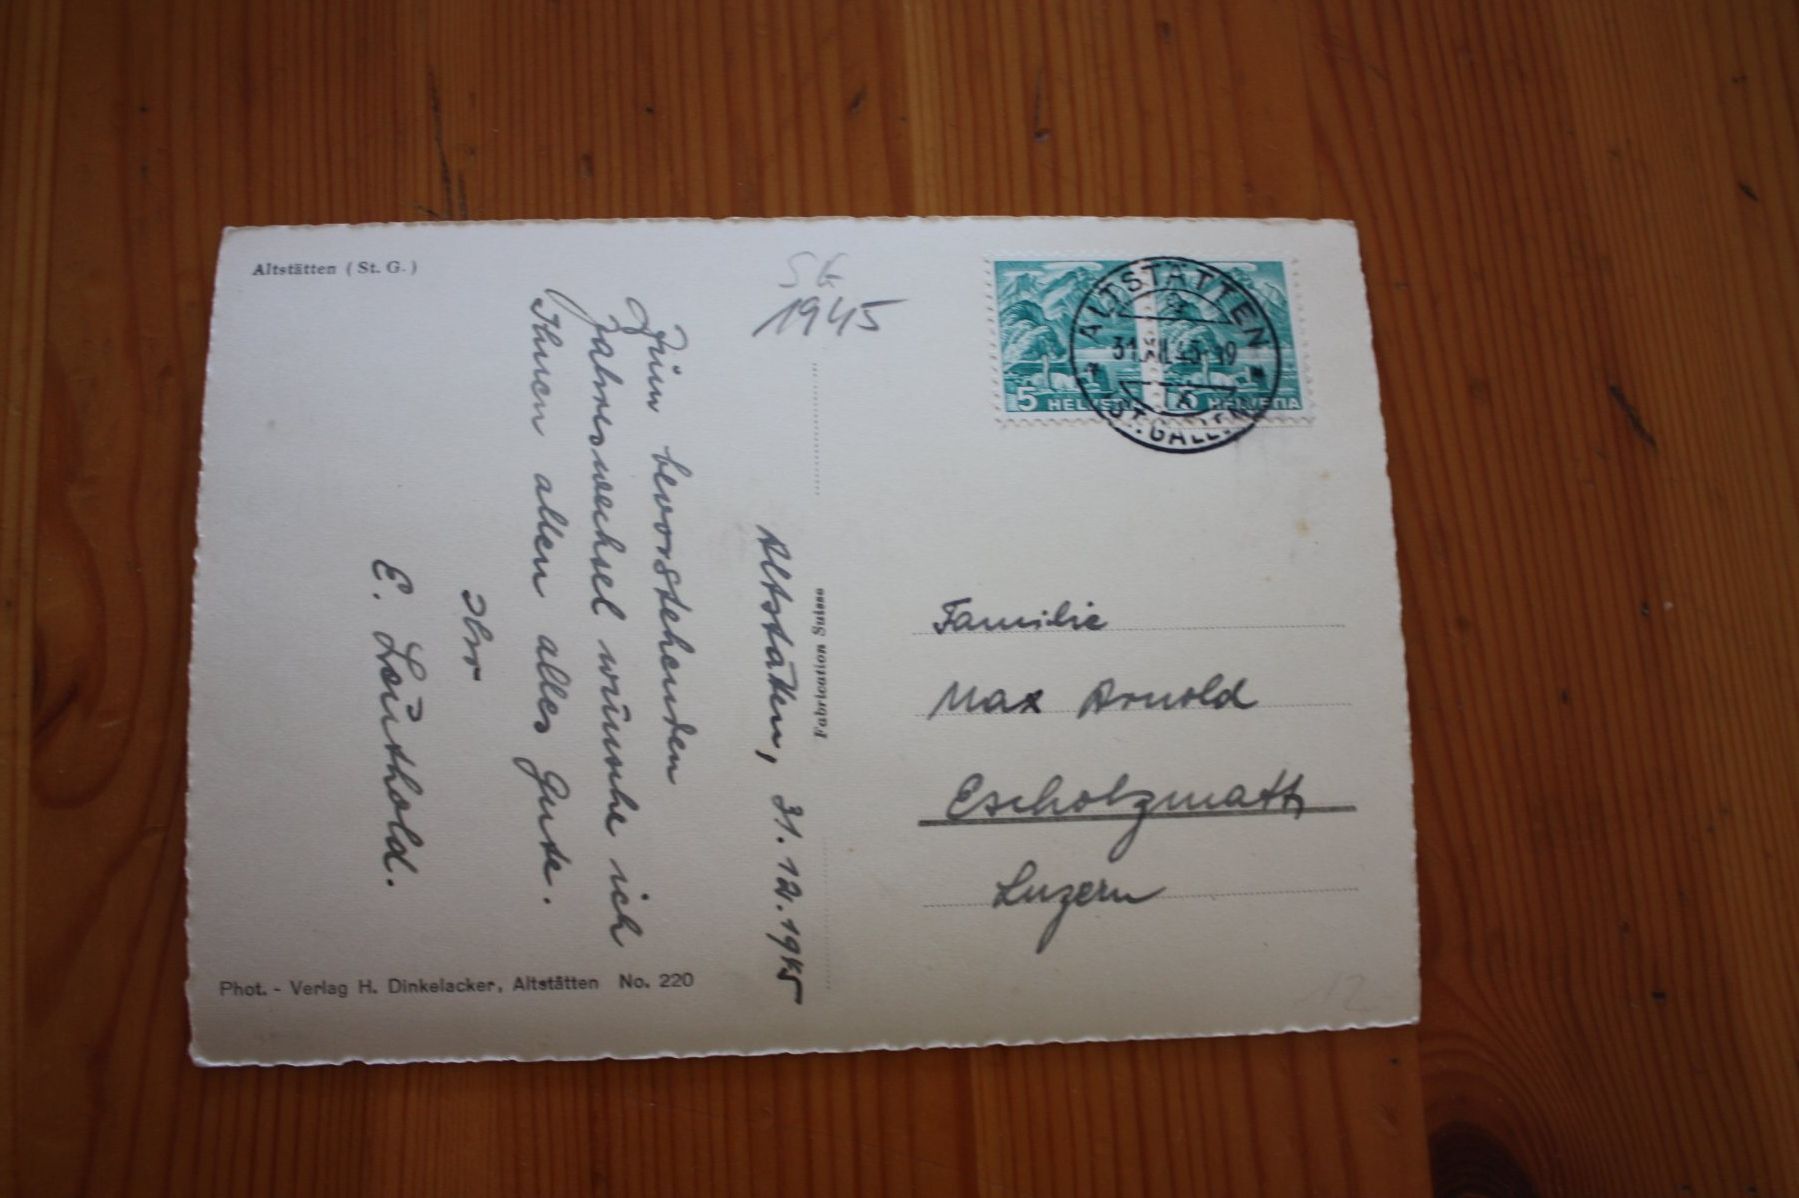 Altstätten (St. G.)
SG
1945
Altstätten, 31.12.1945
Zum bevorstehenden
Jahreswechsel wünsche ich
Ihnen allen alles Gute.
Ihr
E. Leuthold.
Phot. - Verlag H. Dinkelacker, Altstätten No. 220
Fabrication Suisse
5 HELVETIA
5 HELVETIA
ALTSTÄTTEN
31.XII.45-19
ST. GALLEN
Familie
Max Arnold
Escholzmatt
Luzern
12